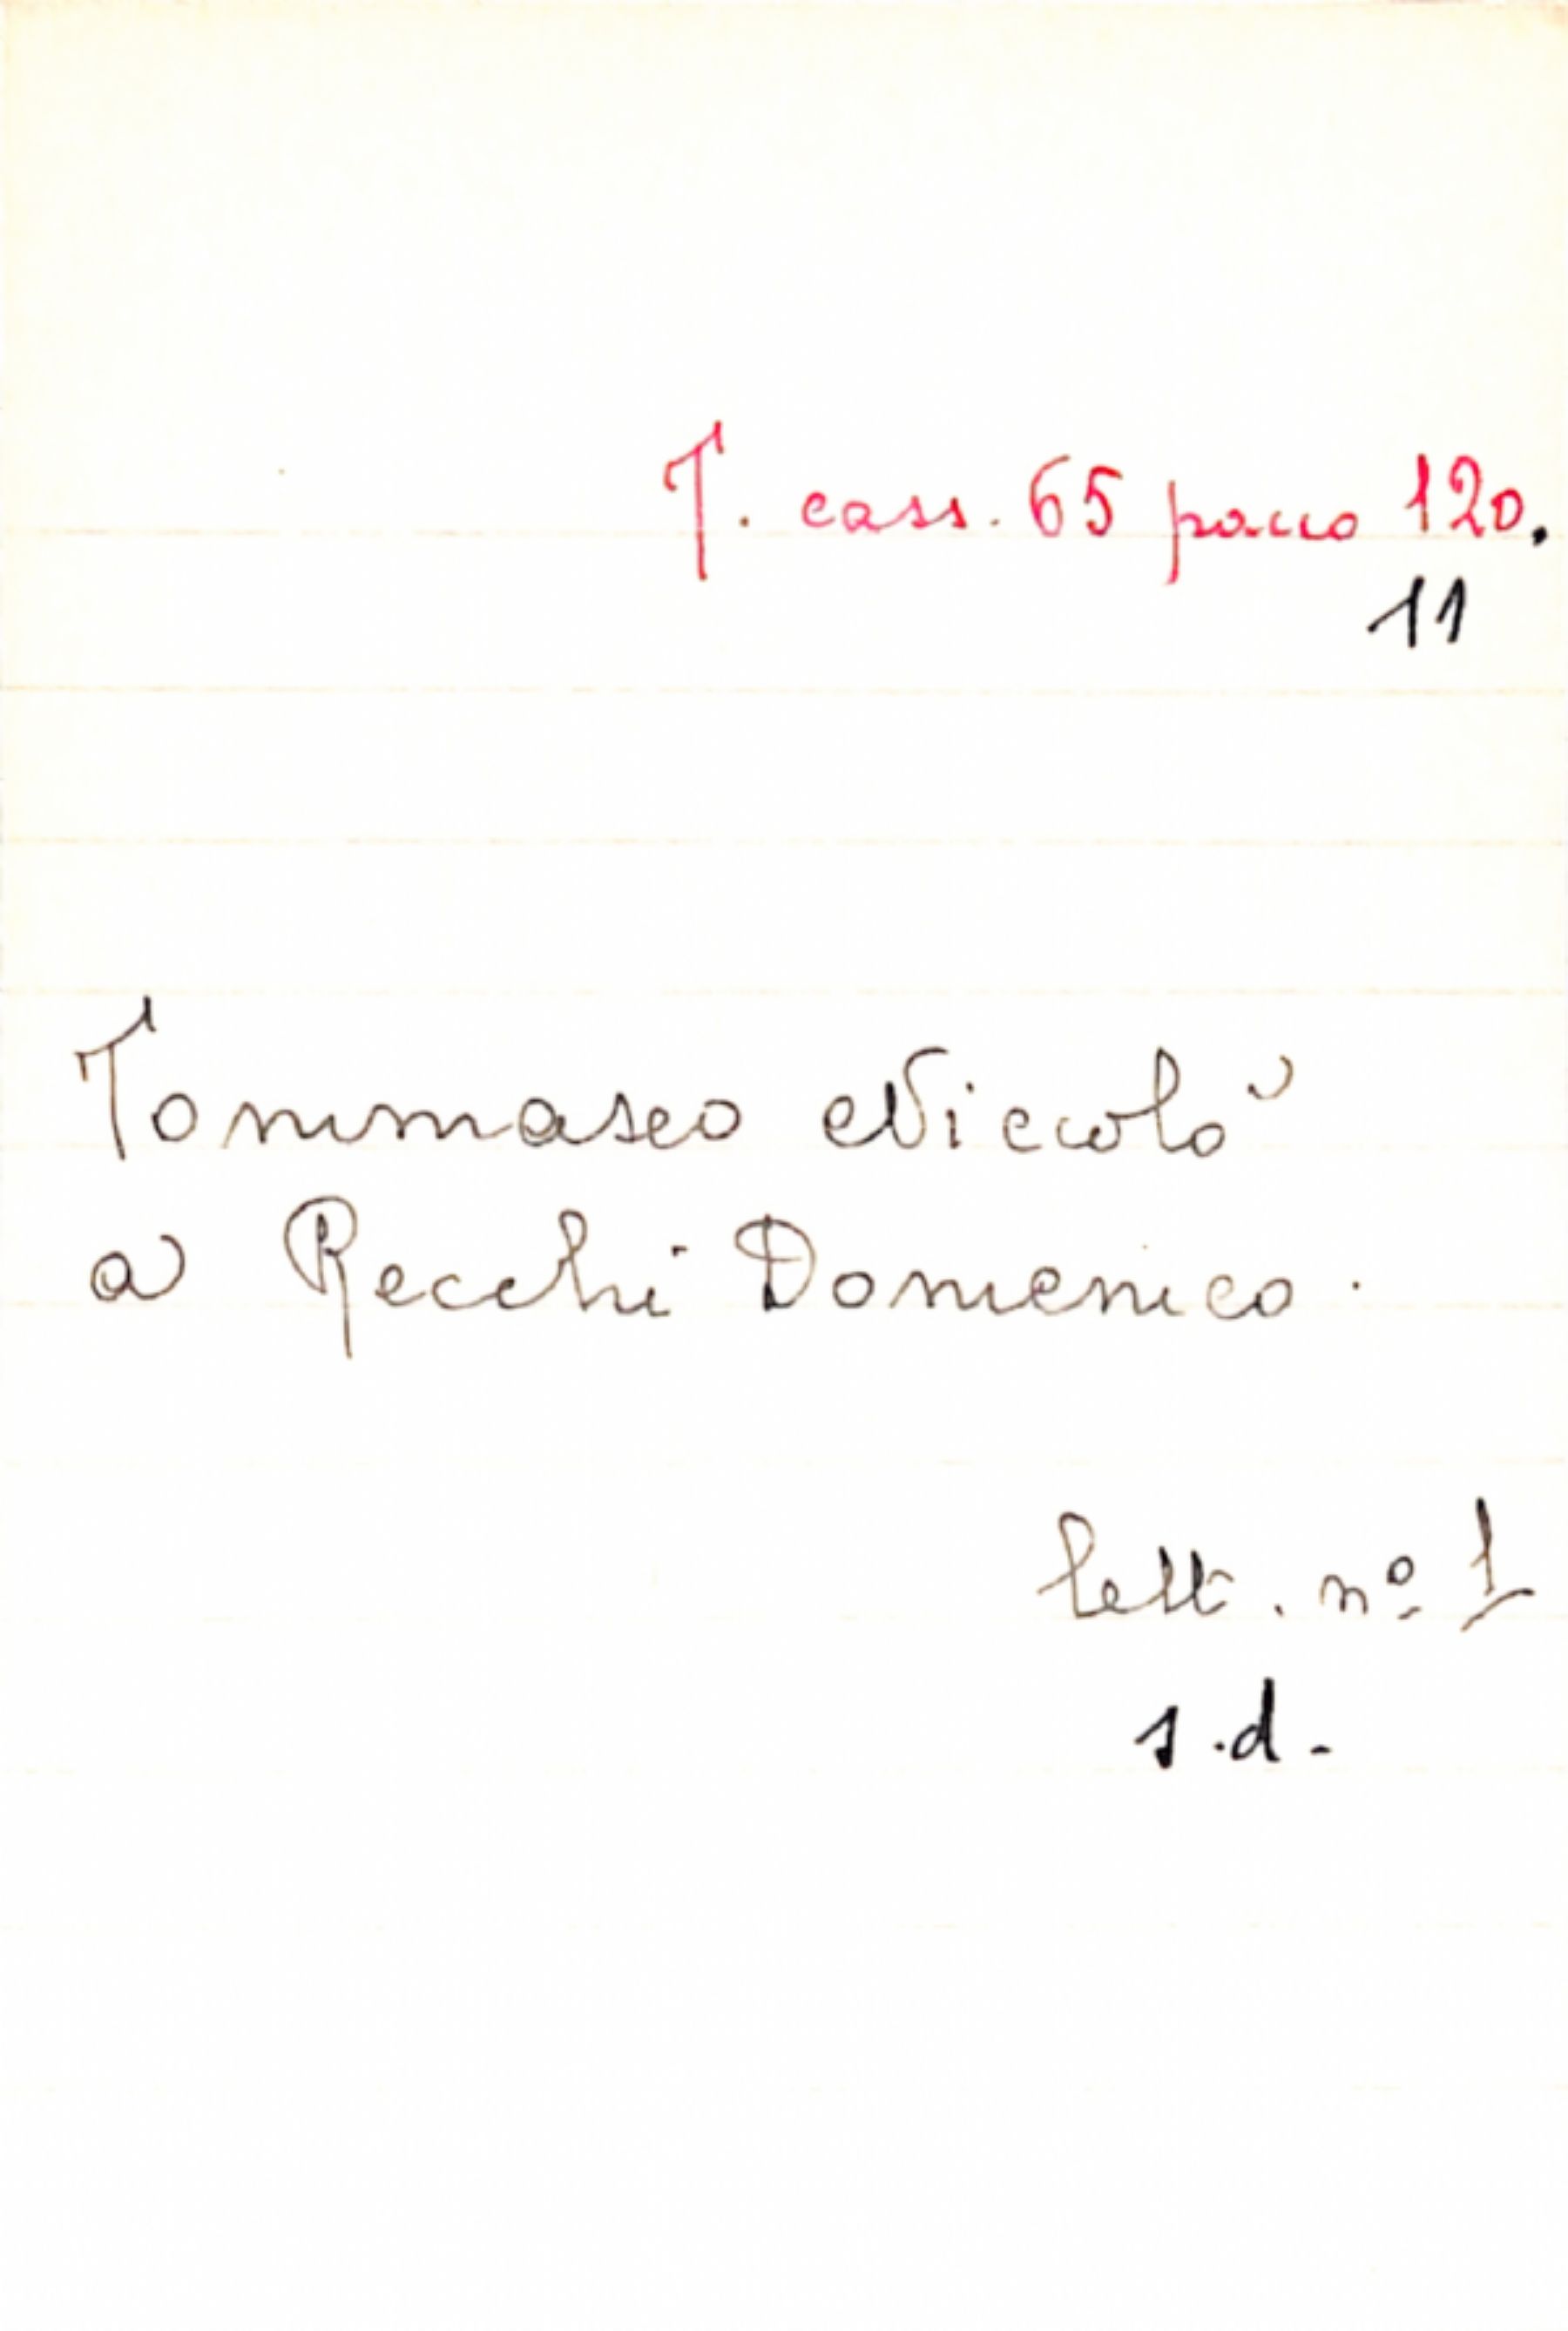 T. cass. 65 pacco 120.
11
Tommaseo Niccolò
a Recchi Domenico.
lett. nº 1
s.d.